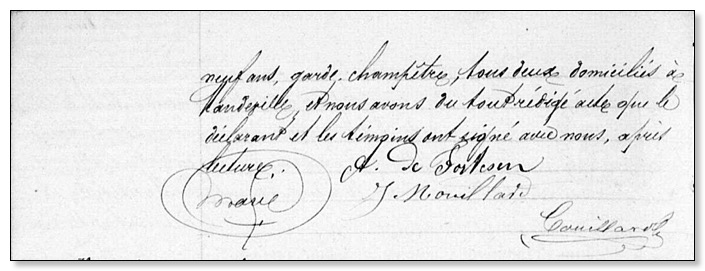 neuf ans, garde-champêtre, tous deux domiciliés à
Vandeville, et nous avons du tout rédigé acte que le
déclarant et les témoins ont signé avec nous, après
lecture.
A. de
J Mouillard
Couillard